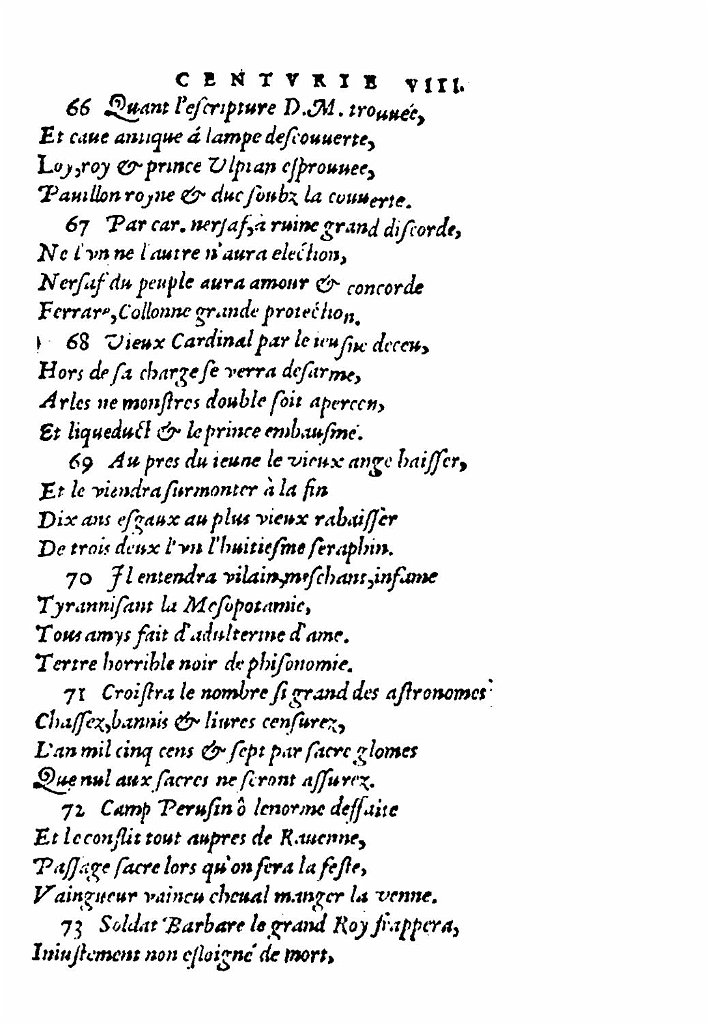 CENTVRIE VIII.
66 Quant l'escripture D.M. trouuée,
Et caue antique á lampe descouuerte,
Loy, roy & prince Vlpian esprouuee,
Pauillon royne & duc soubz la couuerte.
67 Par car. nersaf, à ruine grand discorde,
Ne l'vn ne l'autre n'aura election,
Nersaf du peuple aura amour & concorde
Ferrare, Collonne grande protection.
68 Vieux Cardinal par le ieusne deceu,
Hors de sa charge se verra desarme,
Arles ne monstres double soit aperceu,
Et liqueduct & le prince embausmé.
69 Au pres du ieune le vieux ange baisser,
Et le viendra surmonter à la fin
Dix ans esgaux au plus vieux rabaisser
De trois deux l'vn l'huitiesme seraphin.
70 Il entendra vilain, meschant, infame
Tyrannisant la Mesopotamie,
Tous amys fait d'adulterine d'ame.
Tertre horrible noir de phisonomie.
71 Croistra le nombre si grand des astronomes
Chassez, bannis & liures censurez,
L'an mil cinq cens & sept par sacre glomes
Que nul aux sacres ne seront assurez.
72 Camp Perusin ô lenorme deffaite
Et le conflit tout aupres de Rauenne,
Passage sacre lors qu'on fera la feste,
Vaingueur vaincu cheual manger la venne.
73 Soldat Barbare le grand Roy frappera,
Iniustement non esloigné de mort,